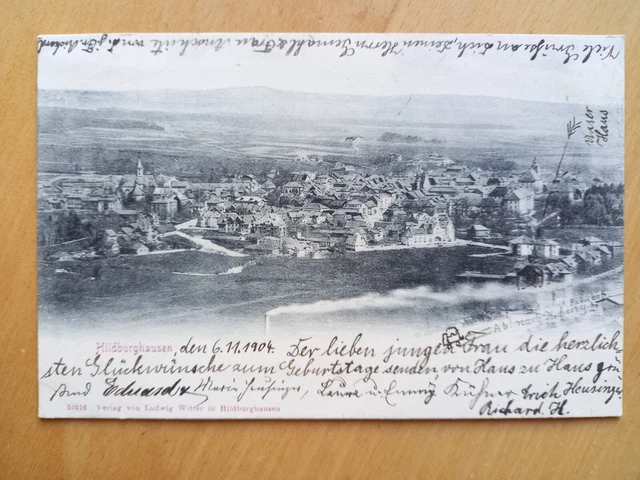 Viele Grüße an Dich, Deinen Herrn Gemahl & Frau
Unser
Haus
Hildburghausen, den 6.11.1904. Der lieben jungen Frau die herzlich-
sten Glückwünsche zum Geburtstage senden von Haus zu Haus
Eduard u. Marie Heusinger, Laura u. Emmy Kühner Erich Heusinger
Richard H.
53016 Verlag von Ludwig Witter in Hildburghausen